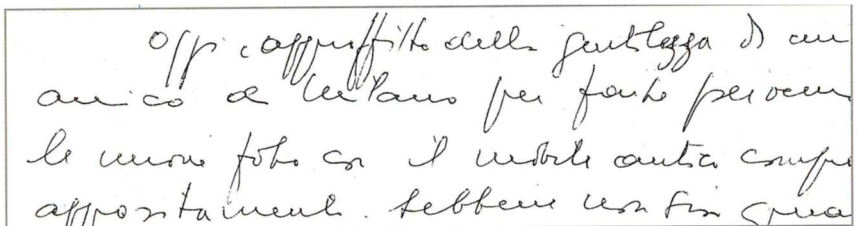 Oggi approffitto della gentilezza di un
amico di Milano per farle pervenire
le nuove foto con il mobile antico compe
appositamente. Sebbene non sia